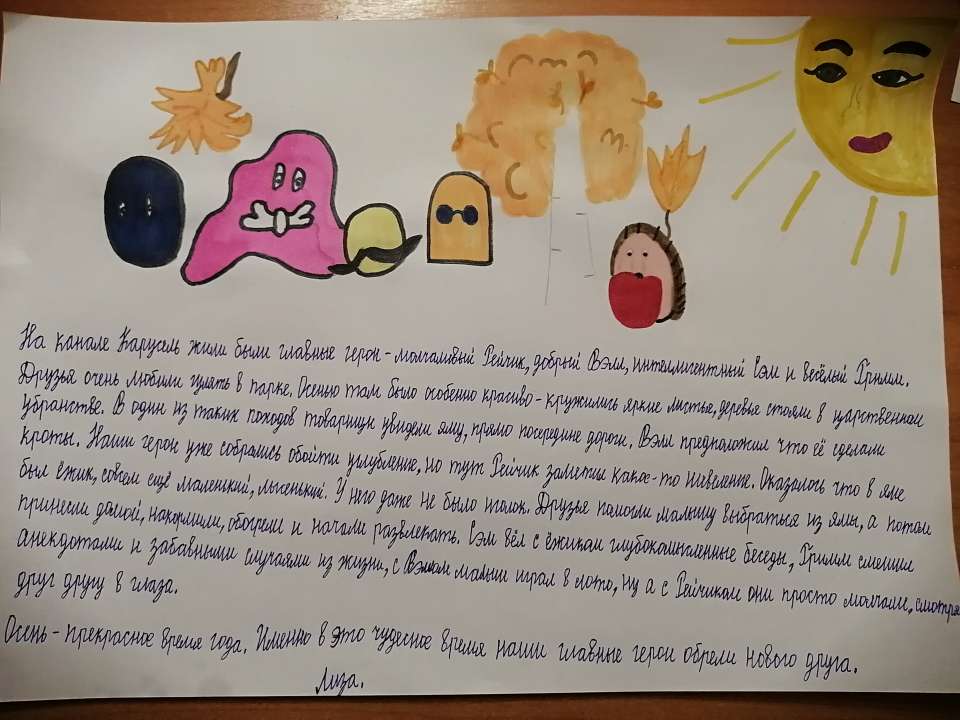 На канале Карусель жили были главные герои - молчаливый Рейчик, добрый Вэлл, интеллигентный Сэм и весёлый Гриллл.
Друзья очень любили гулять в парке. Осенью там было особенно красиво - кружились яркие листья, деревья стояли в царственном
убранстве. В один из таких походов товарищи увидели яму, прямо посередине дороги. Вэлл предположил что её сделали
кроты. Наши герои уже собрались обойти углубление, но тут Рейчик заметил какое-то шевеление. Оказалось что в яме
был ёжик, совсем ещё маленький, лысенький. У него даже не было иголок. Друзья помогли малышу выбраться из ямы, а потом
принесли домой, накормили, обогрели и начали развлекать. Сэм вёл с ёжиком глубокомысленные беседы, Гриллл смешил
анекдотами и забавными случаями из жизни, с Вэллом малыш играл в лото, ну а с Рейчиком они просто молчали, смотря
друг другу в глаза.
Осень - прекрасное время года. Именно в это чудесное время наши главные герои обрели нового друга.
Лиза.